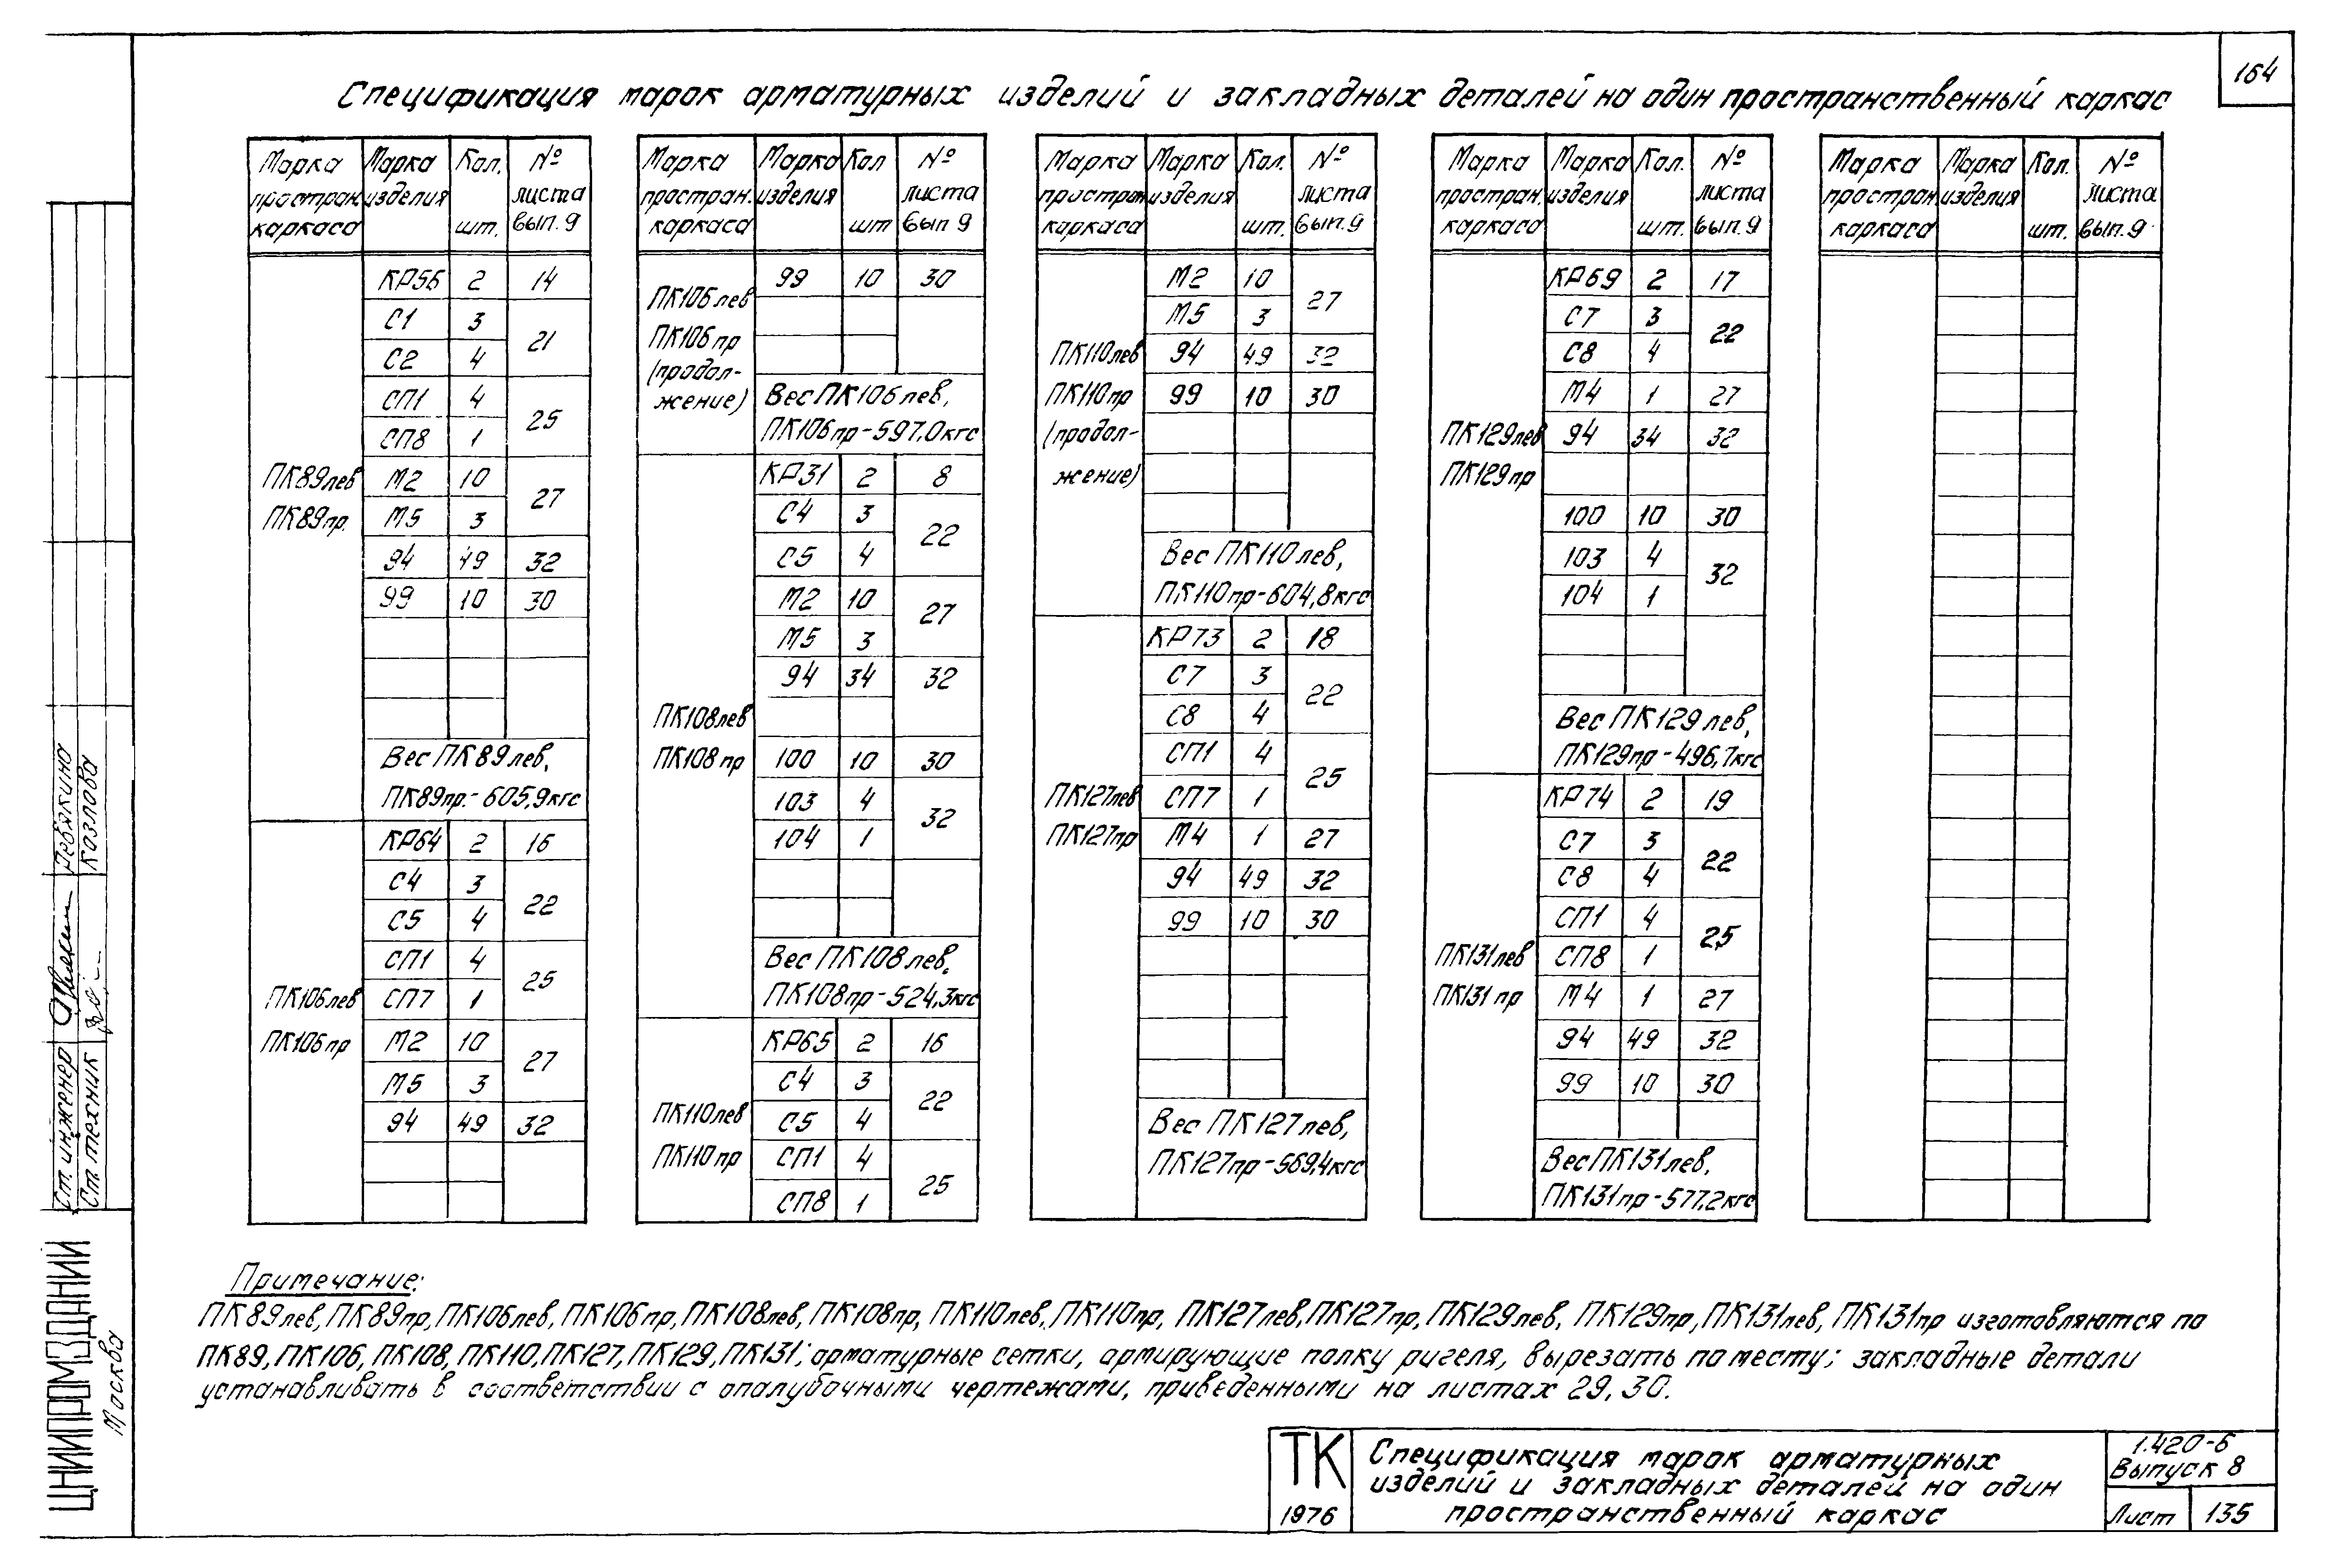 164
Спецификация марок арматурных изделий и закладных деталей на один пространственный каркас
Марка простран. каркаса | Марка изделия | Кол. шт. | № листа вып. 9
ПК89лев ПК89пр.
КР56 2 14
С1 3 21
С2 4
СП1 4 25
СП8 1
М2 10 27
М5 3
94 49 32
99 10 30
Вес ПК89лев,
ПК89пр.- 605,9кгс
ПК106лев ПК106пр
КР64 2 16
С4 3 22
С5 4
СП1 4 25
СП7 1
М2 10 27
М5 3
94 49 32
Марка простран. каркаса | Марка изделия | Кол шт | № листа вып 9
ПК106лев ПК106пр (продол-жение)
99 10 30
Вес ПК106лев,
ПК106пр-597,0кгс
ПК108лев ПК108пр
КР31 2 8
С4 3 22
С5 4
М2 10 27
М5 3
94 34 32
100 10 30
103 4 32
104 1
Вес ПК108лев,
ПК108пр-524,3кгс
ПК110лев ПК110пр
КР65 2 16
С4 3 22
С5 4
СП1 4 25
СП8 1
Марка простран каркаса | Марка изделия | Кол. шт. | № листа вып. 9
ПК110лев ПК110пр (продол-жение)
М2 10 27
М5 3
94 49 32
99 10 30
Вес ПК110лев,
ПК110пр-604,8кгс
ПК127лев ПК127пр
КР73 2 18
С7 3 22
С8 4
СП1 4 25
СП7 1
М4 1 27
94 49 32
99 10 30
Вес ПК127лев,
ПК127пр-569,4кгс
Марка простран. каркаса | Марка изделия | Кол. шт. | № листа вып. 9
ПК129лев ПК129пр
КР69 2 17
С7 3 22
С8 4
М4 1 27
94 34 32
100 10 30
103 4 32
104 1
Вес ПК129лев,
ПК129пр-496,7кгс
ПК131лев ПК131пр
КР74 2 19
С7 3 22
С8 4
СП1 4 25
СП8 1
М4 1 27
94 49 32
99 10 30
Вес ПК131лев,
ПК131пр-577,2кгс
Марка простран каркаса | Марка изделия | Кол. шт. | № листа вып. 9
Примечание:
ПК89лев, ПК89пр, ПК106лев, ПК106пр, ПК108лев, ПК108пр, ПК110лев, ПК110пр, ПК127лев, ПК127пр, ПК129лев, ПК129пр, ПК131лев, ПК131пр изготовляются по
ПК89, ПК106, ПК108, ПК110, ПК127, ПК129, ПК131; арматурные сетки, армирующие полку ригеля, вырезать по месту; закладные детали
устанавливать в соответствии с опалубочными чертежами, приведенными на листах 29, 30.
ТК
1976
Спецификация марок арматурных
изделий и закладных деталей на один
пространственный каркас
1.420-6
Выпуск 8
Лист 135
Ст. инженер Ревякина
Ст техник Козлова
ЦНИИПРОМЗДАНИЙ
Москва